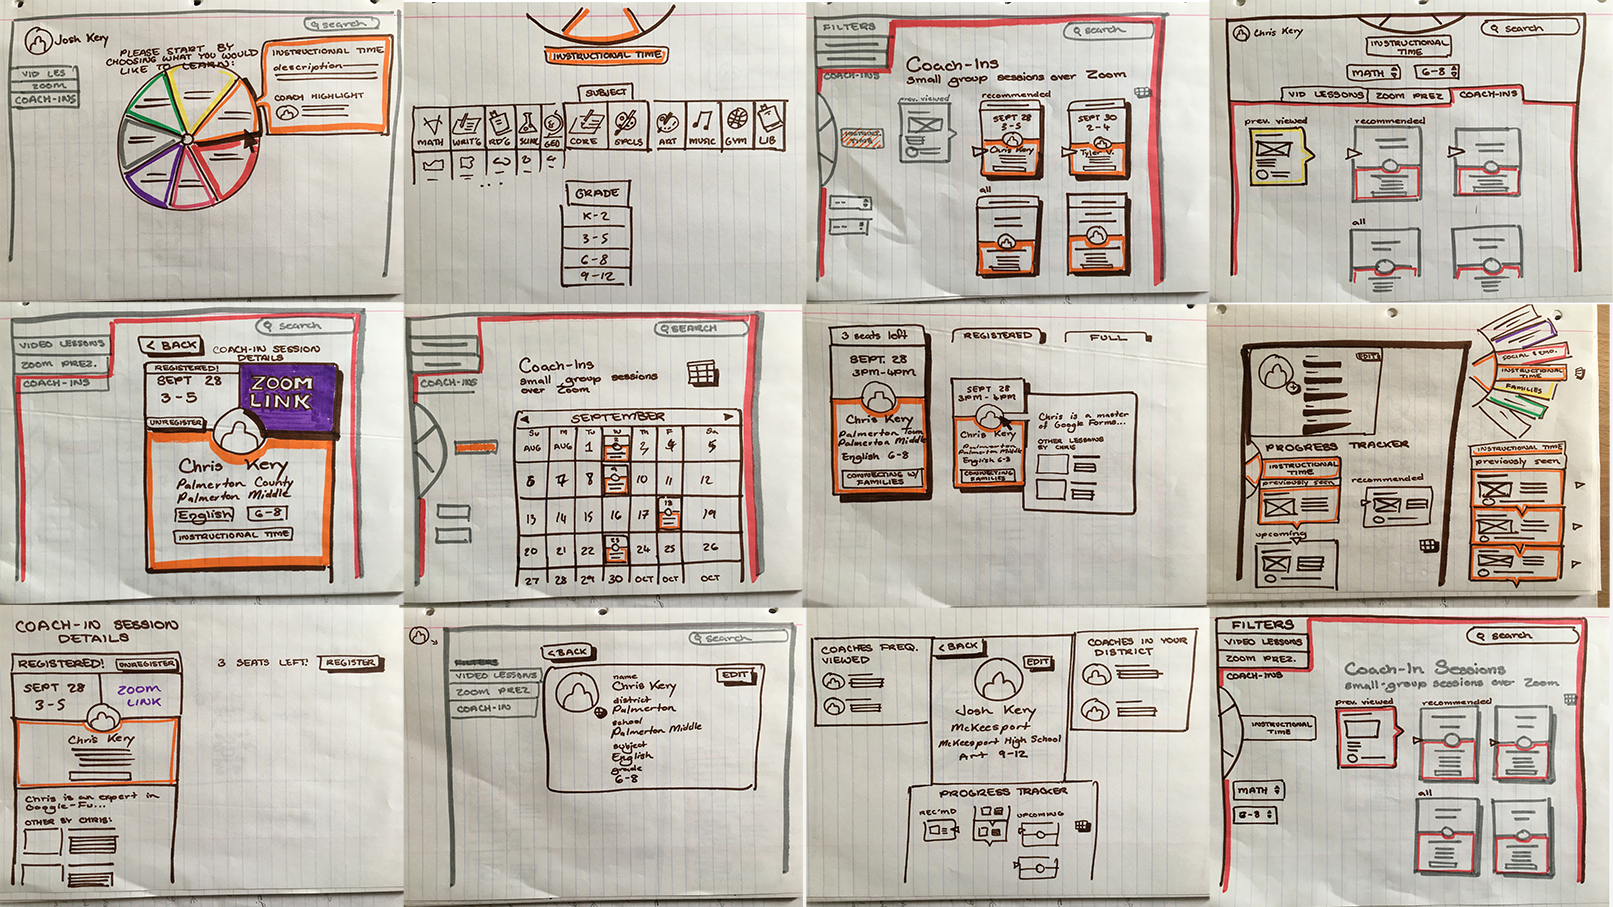 Josh Kery
search
PLEASE START BY
CHOOSING WHAT YOU WOULD
LIKE TO LEARN:
VID LES
ZOOM
COACH-INS
INSTRUCTIONAL TIME
description
COACH HIGHLIGHT
INSTRUCTIONAL TIME
SUBJECT
MATH
WRIT'G
RD'G
GEO
CORE
SPCLS
ART
MUSIC
GYM
LIB
GRADE
K-2
3-5
6-8
9-12
FILTERS
COACH-INS
search
Coach-Ins
small group sessions over Zoom
prev. viewed
recommended
SEPT 28
3-5
Chris Kery
SEPT 30
2-4
Tyler V.
all
Chris Kery
search
INSTRUCTIONAL
TIME
MATH
6-8
VID LESSONS
ZOOM PREZ
COACH-INS
prev. viewed
recommended
all
VIDEO LESSONS
ZOOM PREZ.
COACH-INS
search
< BACK
COACH-IN SESSION
DETAILS
REGISTERED!
SEPT 28
3-5
ZOOM
LINK
UNREGISTER
Chris Kery
Palmerton County
Palmerton Middle
English
6-8
INSTRUCTIONAL TIME
COACH-INS
SEARCH
Coach-Ins
small group sessions
over Zoom
SEPTEMBER
Su M Tu W Th F Sa
AUG AUG 1 2 3 4 5
6 7 8 9 10 11 12
13 14 15 16 17 18 19
20 21 22 23 24 25 26
27 28 29 30 OCT OCT OCT
3 seats left
REGISTERED
FULL
SEPT. 28
3PM-4PM
Chris Kery
Palmerton Town
Palmerton Middle
English 6-8
CONNECTING W/
FAMILIES
SEPT 28
3PM-4PM
Chris Kery
Palmerton
Palmerton Middle
English 6-8
CONNECTING
FAMILIES
Chris is a master
of Google Forms...
OTHER LESSONS
BY CHRIS
EDIT
SOCIAL & EMO.
INSTRUCTIONAL
TIME
FAMILIES
PROGRESS TRACKER
INSTRUCTIONAL
TIME
previously seen
recommended
upcoming
INSTRUCTIONAL TIME
previously seen
COACH-IN SESSION
DETAILS
REGISTERED!
UNREGISTER
3 SEATS LEFT!
REGISTER
SEPT 28
3-5
ZOOM
LINK
Chris Kery
Chris is an expert in
Google-Fu...
OTHER BY CHRIS:
search
FILTERS
VIDEO LESSONS
ZOOM PREZ
COACH-IN
< BACK
EDIT
name
Chris Kery
district
Palmerton
school
Palmerton Middle
subject
English
grade
6-8
COACHES FREQ.
VIEWED
< BACK
EDIT
COACHES IN YOUR
DISTRICT
Josh Kery
McKeesport
McKeesport High School
Art 9-12
PROGRESS TRACKER
REC'MD
UPCOMING
FILTERS
VIDEO LESSONS
ZOOM PREZ.
COACH-INS
search
Coach-In Sessions
small-group sessions over Zoom
INSTRUCTIONAL
TIME
prev. viewed
recommended
MATH
6-8
all